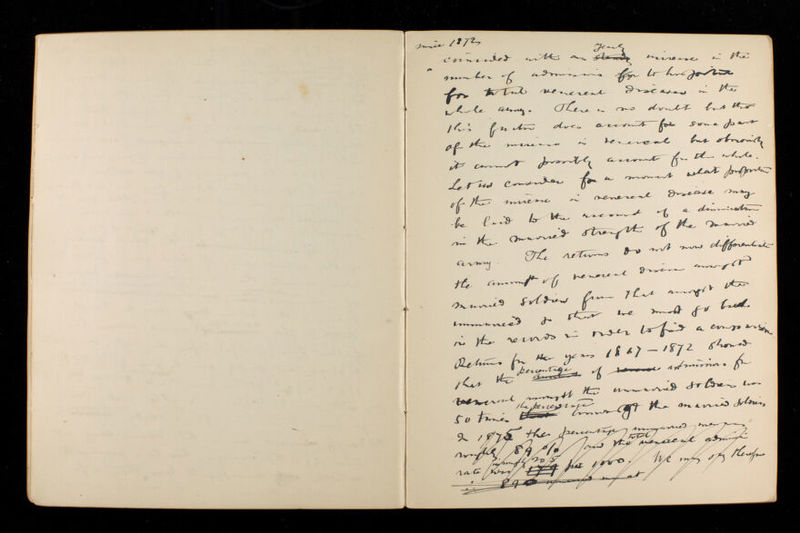 since 1872
yearly
coincided with an steady increase in the
number of admissions for to hospital
for total venereal diseases in the
whole army. There is no doubt but that
this factor does account for some part
of the increase in venereal but obviously
it cannot possibly account for the whole.
Let us consider for a moment what proportion
of the increase in venereal disease may
be laid to the account of a diminution
in the married strength of the married
army. The returns do not now differentiate
the amount of venereal disease amongst
married soldiers from that amongst the
unmarried so that we must go back
in the records in order to find a comparison
Returns for the years 1867-1872 showed
percentage
that the of admissions for
venereal amongst the unmarried soldiers was
the percentage
50 times amongst the married soldiers
In 1875 the percentage unmarried men
total
roughly 89 % and the venereal admission
rate per 1000. We may say therefore
890